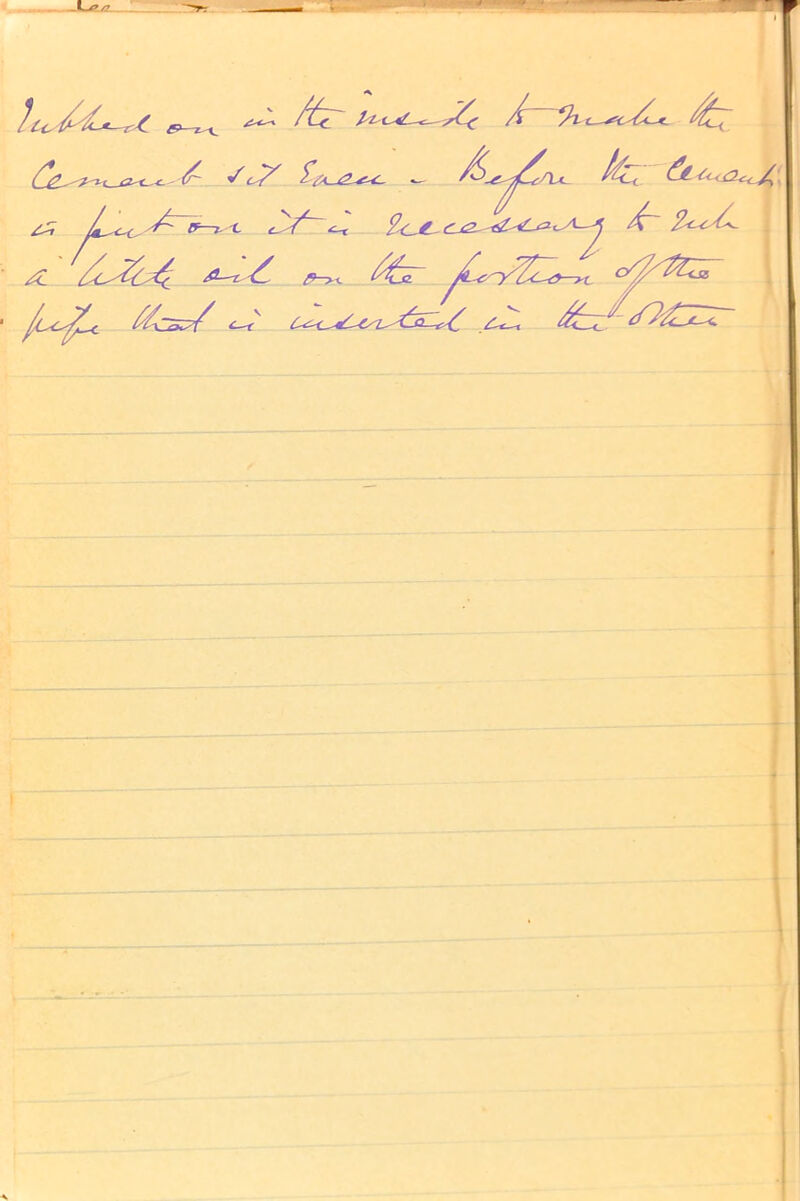 rubbed on in the inside to make the
Cement sit even - Before the Cement
is put on it is necessary to rub
a little oil on the portion of the
pipe that is inserted in the other